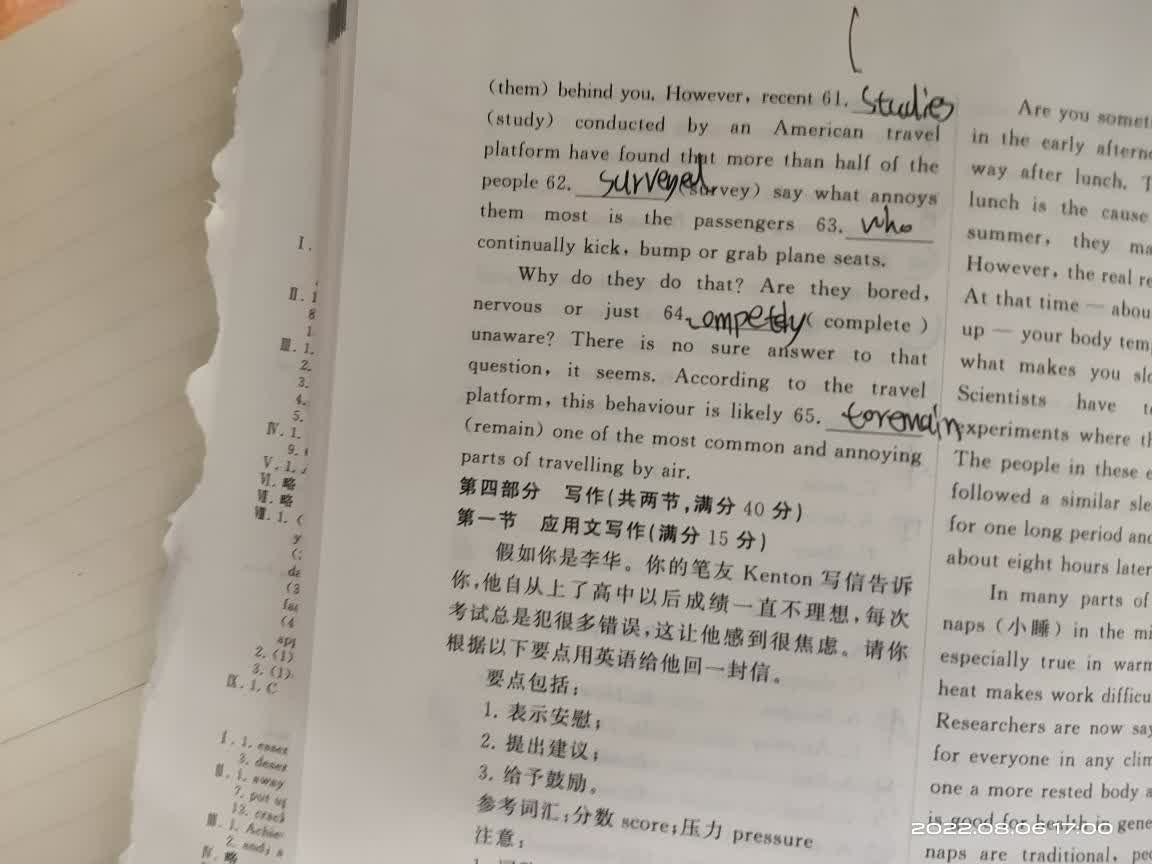 (them) behind you. However, recent 61. Studies
(study) conducted by an American travel
platform have found that more than half of the
people 62. surveyed (survey) say what annoys
them most is the passengers 63. who
continually kick, bump or grab plane seats.
Why do they do that? Are they bored,
nervous or just 64. (complete)
unaware? There is no sure answer to that
question, it seems. According to the travel
platform, this behaviour is likely 65. to remain
(remain) one of the most common and annoying
parts of travelling by air.
第四部分 写作(共两节,满分 40 分)
第一节 应用文写作(满分 15 分)
假如你是李华。你的笔友 Kenton 写信告诉
你,他自从上了高中以后成绩一直不理想,每次
考试总是犯很多错误,这让他感到很焦虑。请你
根据以下要点用英语给他回一封信。
要点包括:
1. 表示安慰;
2. 提出建议;
3. 给予鼓励。
参考词汇:分数 score;压力 pressure
注意:
Are you
in the early
way after lunch.
lunch is the cause
summer, they
However, the real
At that time — 
up — your body
what makes you
Scientists have
experiments where
The people in these
followed a similar
for one long period
about eight hours
In many parts of
naps (小睡) in the
especially true in
heat makes work
Researchers are now
for everyone in any
one a more rested body
is good for health in
naps are traditional,
I.
II. 1
8
1.
III. 1.
2.
3.
4.
5.
IV. 1.
9.
V. 1.
VI. 略
VII. 略
VIII. 1. (
(3
(4
2. (1)
3. (1)
IX. 1. C
I. 1.
3.
II. 1. away
7. put
12.
III. 1.
2. and;
IV. 略
2022.08.06 17:00